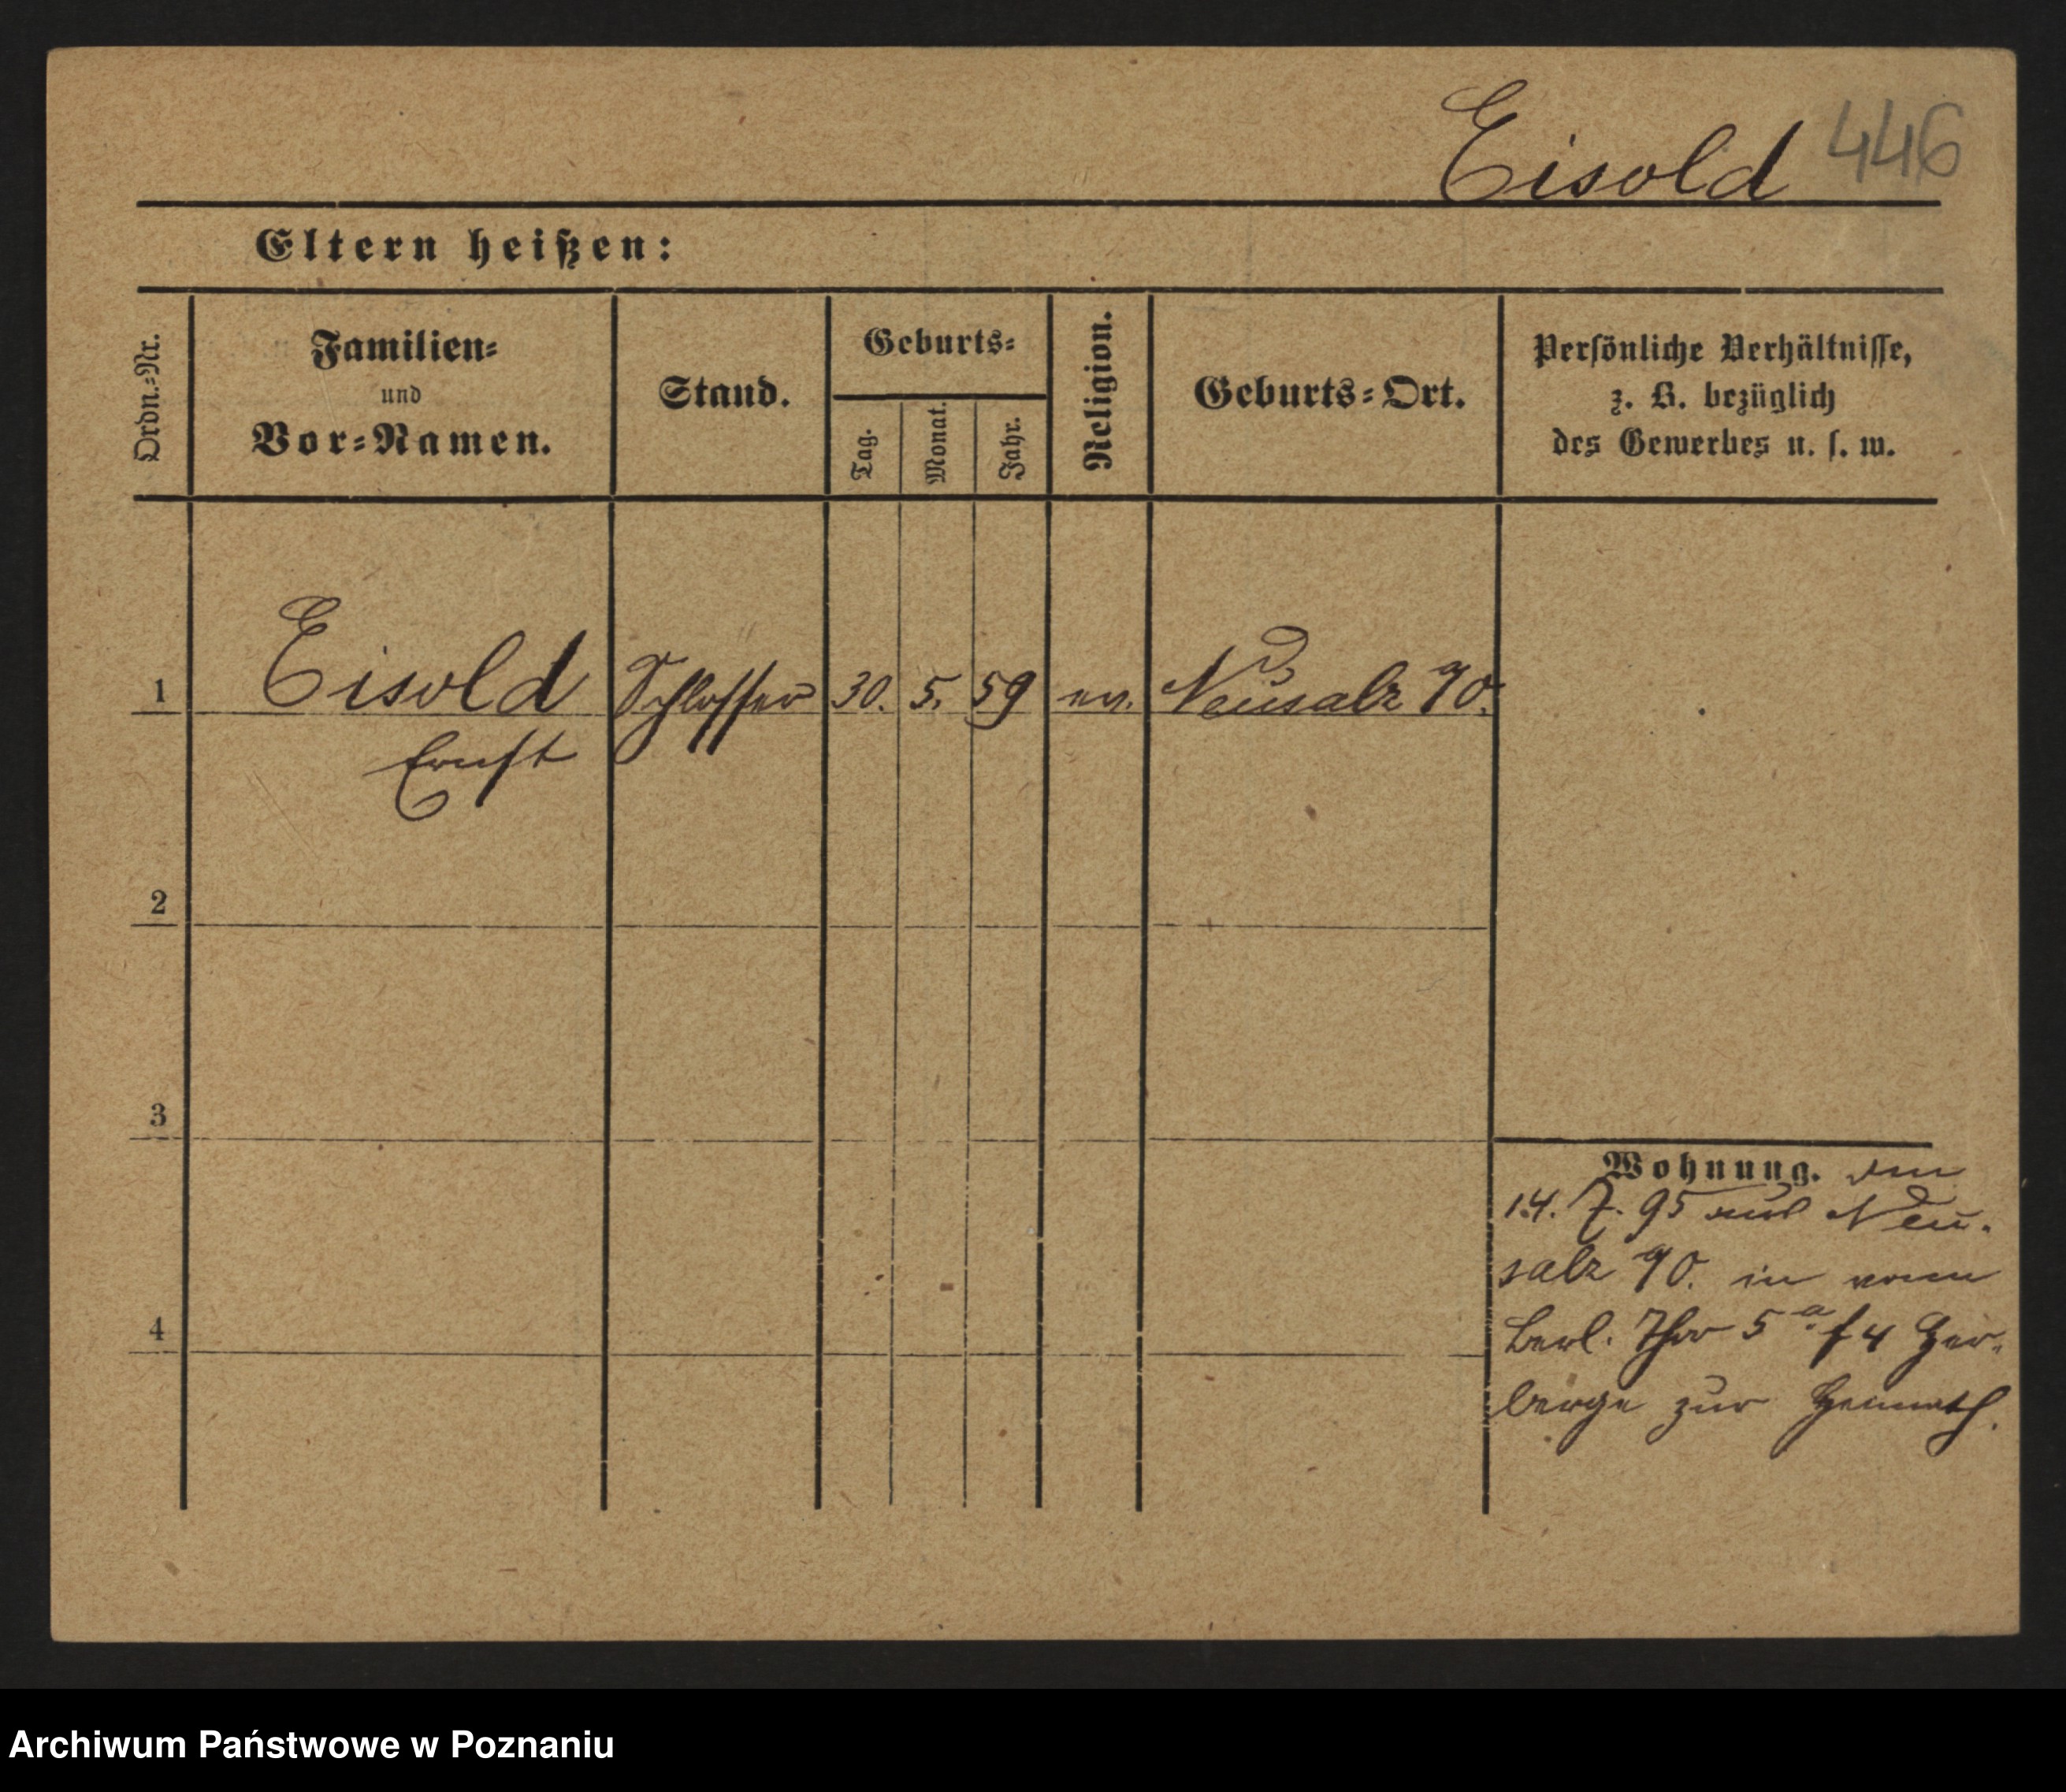 Eisold 446
Eltern heißen:
Ordn.=Nr.
Familien=
und
Vor=Namen.
Stand.
Geburts=
Tag.
Monat.
Jahr.
Religion.
Geburts=Ort.
Persönliche Verhältnisse,
z. B. bezüglich
des Gewerbes u. s. w.
1 Eisold Schlosser 30. 5. 59 ev. Neusalz
Ernst
2
3
4
Wohnung. den
14. 7. 95 aus Neu-
salz in
Berl. Thor 5 a Her-
berge zur Heimath.
Archiwum Państwowe w Poznaniu